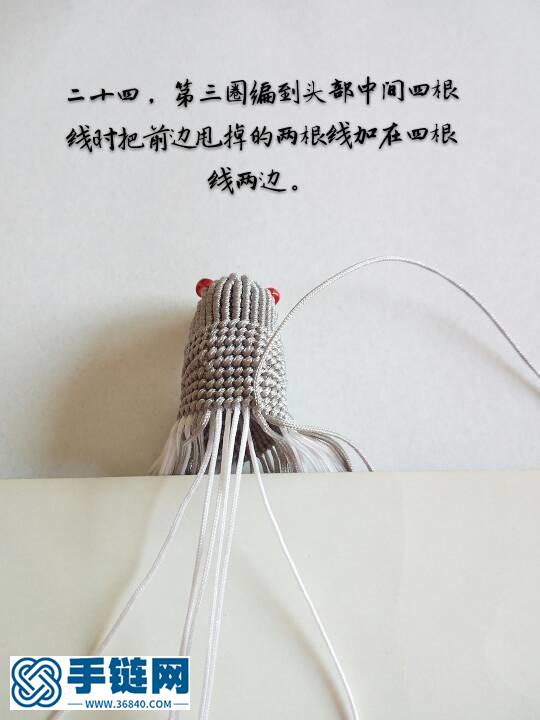 二十四，第三圈编到头部中间四根
线时把前边甩掉的两根线加在四根
线两边。
手链网
www.36840.com